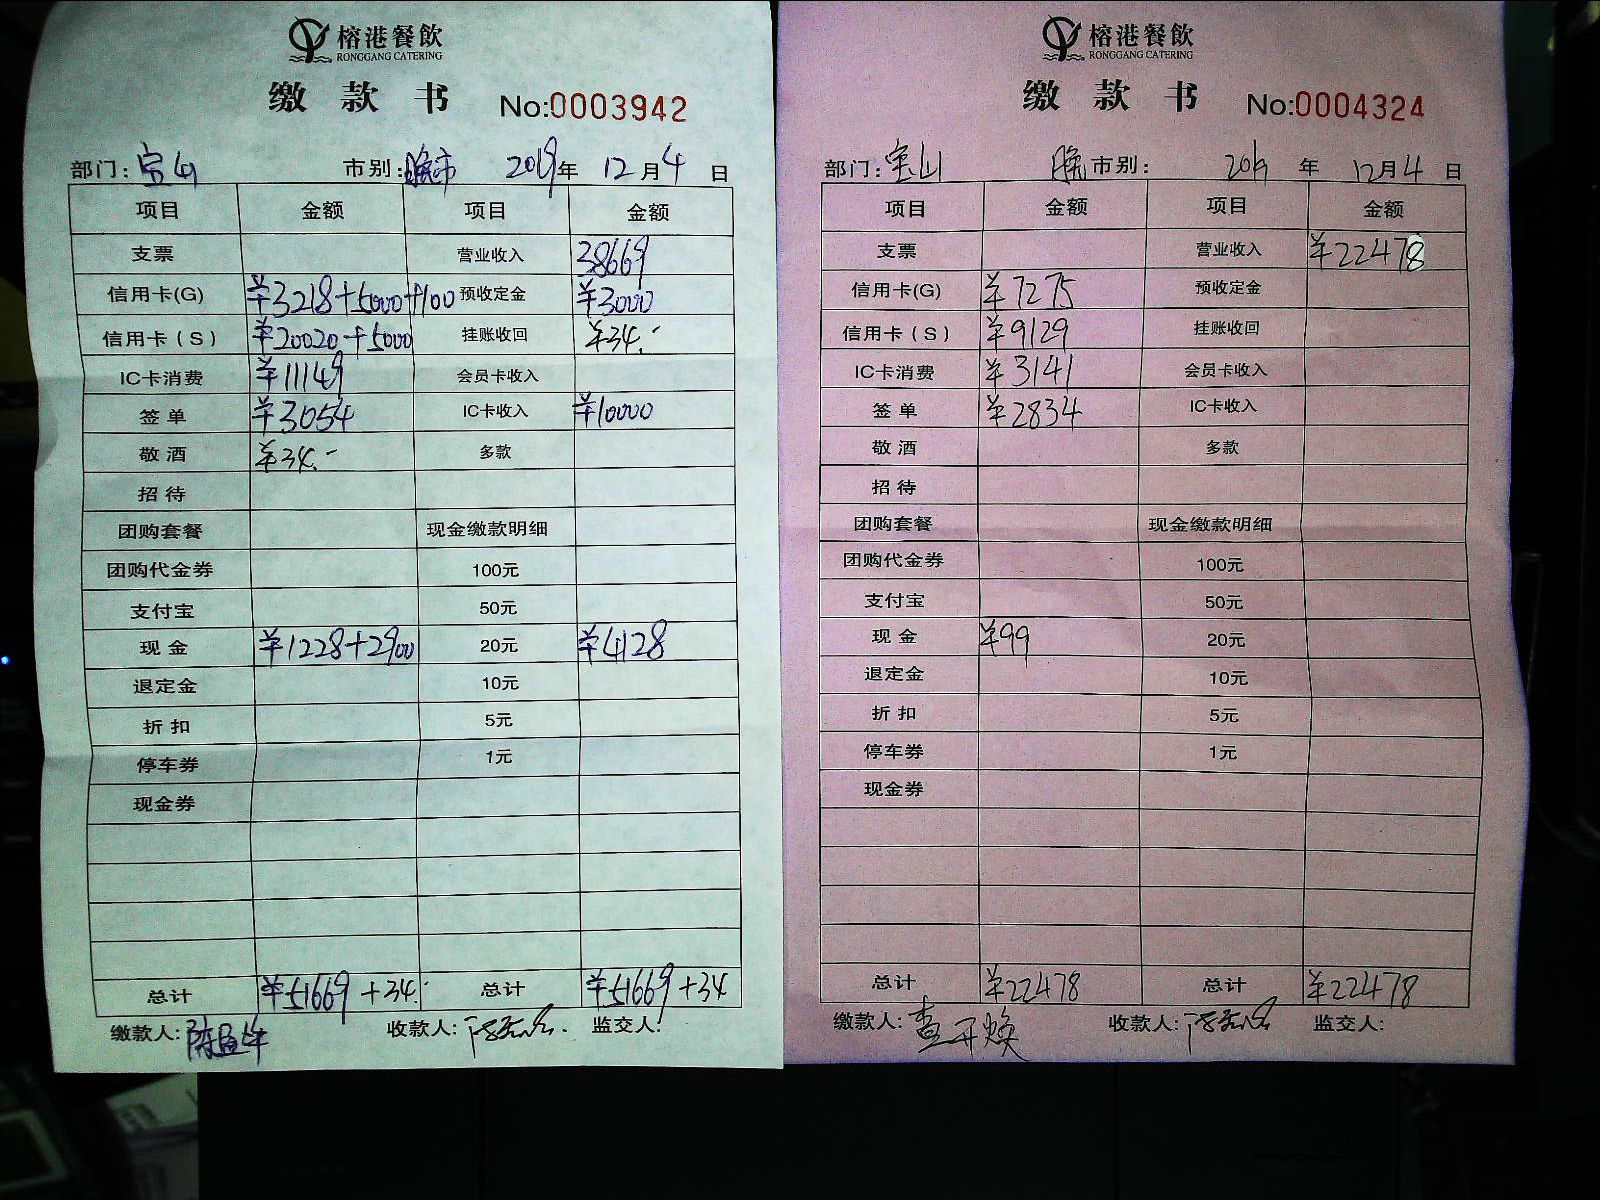 榕港餐飲
RONGGANG CATERING
缴款书 No:0003942
部门:宝山 市别:晚市 2019年 12月4日
项目 金额 项目 金额
支票 营业收入 38669
信用卡(G) ¥3218+5000+100 预收定金 ¥3000
信用卡(S) ¥20020+5000 挂账收回 ¥34.-
IC卡消费 ¥11149 会员卡收入
签单 ¥3054 IC卡收入 ¥10000
敬酒 ¥34.- 多款
招待
团购套餐 现金缴款明细
团购代金券 100元
支付宝 50元
现金 ¥1228+2900 20元 ¥4128
退定金 10元
折扣 5元
停车券 1元
现金券
总计 ¥51669+34. 总计 ¥51669+34
缴款人: 收款人: 监交人:
榕港餐飲
RONGGANG CATERING
缴款书 No:0004324
部门:宝山 晚市别: 2019年 12月4日
项目 金额 项目 金额
支票 营业收入 ¥22478
信用卡(G) ¥7275 预收定金
信用卡(S) ¥9129 挂账收回
IC卡消费 ¥3141 会员卡收入
签单 ¥2834 IC卡收入
敬酒 多款
招待
团购套餐 现金缴款明细
团购代金券 100元
支付宝 50元
现金 ¥99 20元
退定金 10元
折扣 5元
停车券 1元
现金券
总计 ¥22478 总计 ¥22478
缴款人:查开焕 收款人: 监交人: